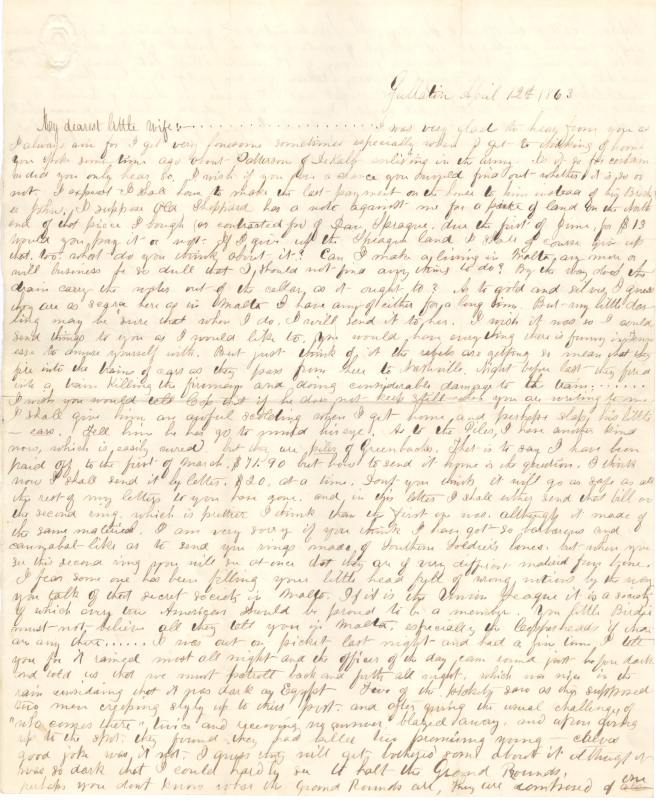 Gallatin April 12th 1863
My dearest little wife:- I was very glad to hear from you as
I always am for I get very lonesome sometimes especially when I get to thinking of home
You spoke some time ago about Patterson of Dekalb enlisting in the army. Is it so for certain
or did you only hear so. I wish if you have a chance you would find out whether it is so or
not. I expect I shall have to make the last payment on the to him instead of his
John. I suppose Old Sheppard has a note against me for a piece of land on the North
end of that piece I bough (or contracted for) of Dan Sprague. due the first of June for $13
would you pay it or not. If I give up the Sprague land I shall of course give up
that too. what do you think about it? Can I make a living in Malta any more or
will business be so dull that I should not find any thing to do? By the way does the
drain carry the water out of the cellar as it ought to? As to gold and silver, I guess
they are as scarce here as in Malta I have any of either for a long time. But my little dar-
ling may be sure that when I do, I will send it to her. I wish it was so I could
send things to you as I would like to. You would have every thing there is funny
to amuse yourself with. But just think of it the rebels are getting so mean that they
fire into the trains of cars as they pass from here to Nashville. Night before last they fired
into a train killing the fireman and doing considerable damage to the train.......
I wish you would tell that if he does not keep still when you are writing to me
I shall give him an awful scolding when I get home, and perhaps slap his little
ears. Tell him he has go to mind his eye. As to the Piles, I have another kind
now, which is easily cured, but they are piles of Greenbacks. That is to say I have been
paid off to the first of March. $71.90 but how to send it home is the question. I think
now I shall send it by letter. $20. at a time. Dont you think it will go as safe as all
the rest of my letters to you have gone. and in this letter I shall either send that bill or
the second ring, which is prettier I think than the first one was. although it made of
the same material. I am very sorry if you think I have got so barbarous and
cannybal like as to send you rings made of Southern Soldier's bones. but when you
see this second ring you will see at once that they are of very different material from bone.
I fear some one has been filling your little head full of wrong notions by the way
you talk of that secret society in Malta. If it is the Union League it is a society
of which every true American should be proud to be a member. You little Birdie
must not believe all they tell you in Malta, especially the Copperheads if there
are any there...... I was out on picket last night and had a fine time. I tell
you for it rained most all night and the officer of the day came round just before dark
and told us that we must patroll back and forth all night, which was nice in the
rain considering that it was dark as Egypt Two of the pickets saw as they supposed
two men creeping slyly up to their post. and after giving the usual challenge of
"who comes there", twice and receiving no answer blazed away. and upon going
up to the spot. they found they had killed two promising young calves
good joke was it not. I guess they will get some about it although it
was so dark that I could hardly see to halt the Ground Rounds,
perhaps you dont know what the Ground Rounds are, they are composed of one